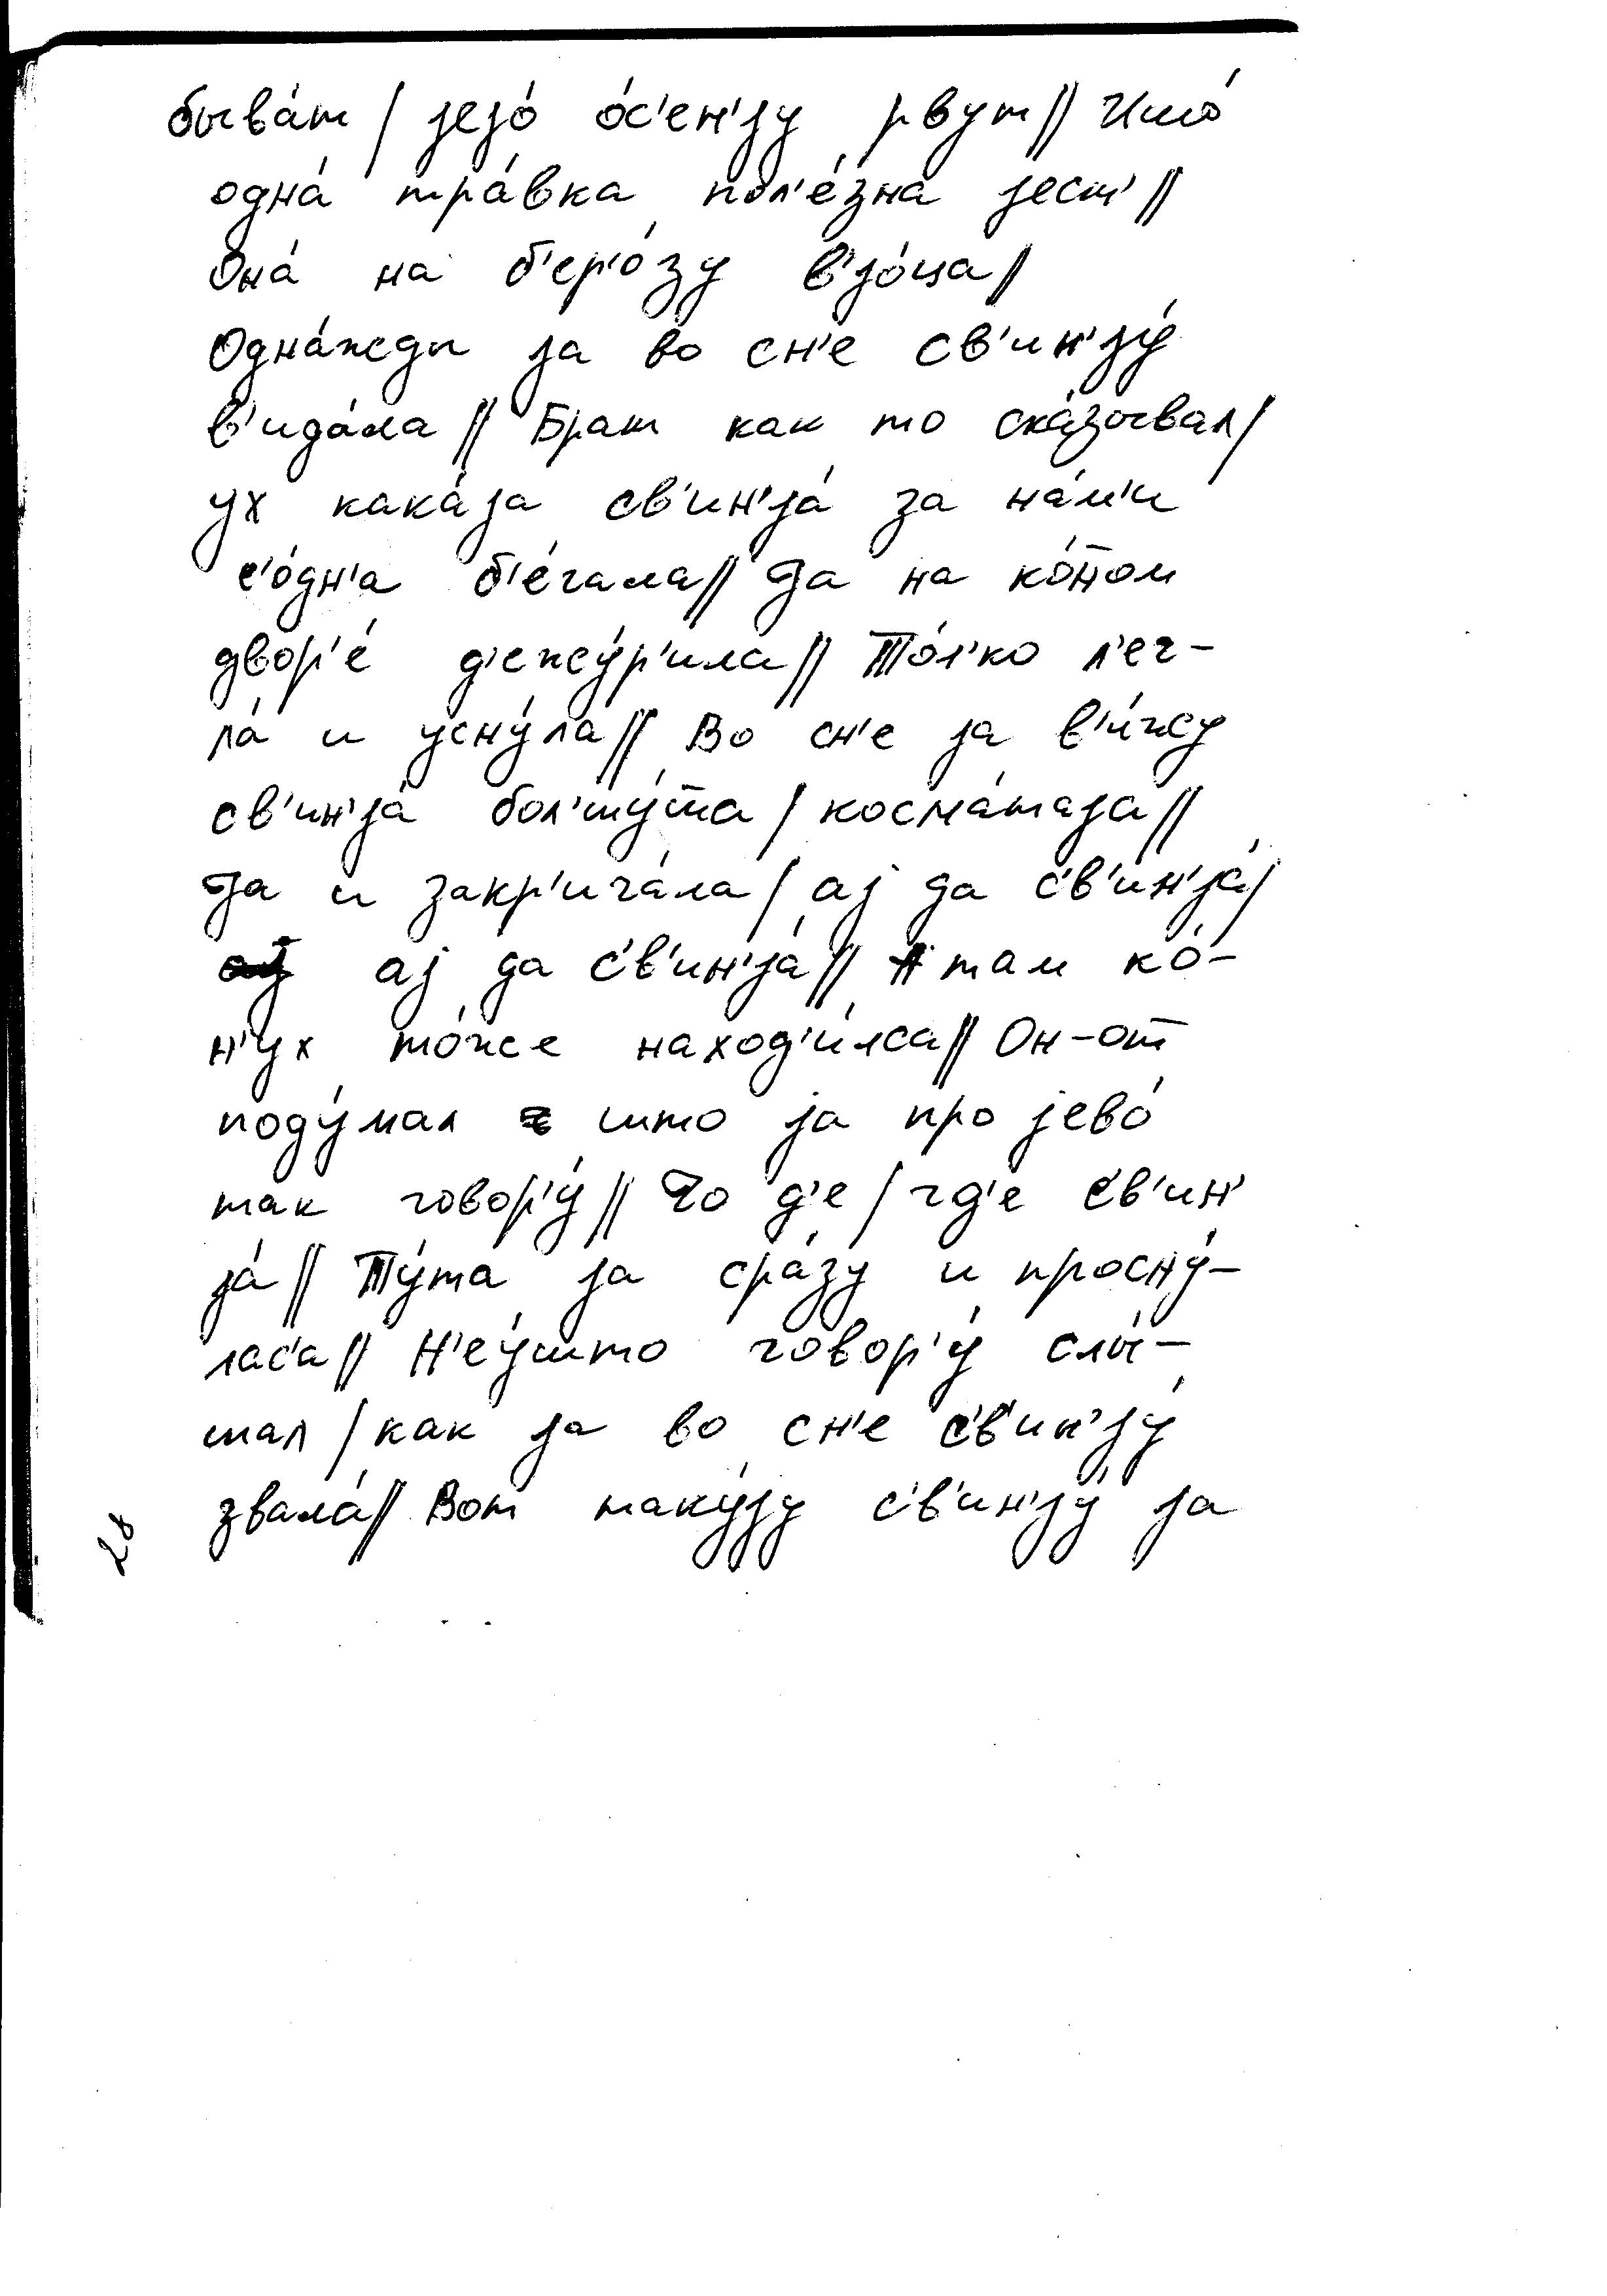 быва́т / jejо́ о́с'ен'jу рвут // Ишо́
одна́ тра́вка пол'е́зна jест' //
Она́ на б'ер'о́зу в'jо́ца /
Одна́жды jа во сн'е св'ин'jу́
в'ида́ла // Брат как то ска́зывал /
ух кака́jа св'ин'jа́ за на́м'и
с'о́дн'а б'е́гала // Jа на ко́нном
двор'е́ д'ежу́р'ила // То́л'ко л'ег-
ла́ и усну́ла // Во сн'е jа в'и́жу
св'ин'jа́ бол'шу́шша / косма́таjа //
Jа и закр'ича́ла / аj да с'в'ин'jа́ /
аj да с'в'ин'jа́ // А там ко́-
н'ух то́же наход'и́лса // Он-от
поду́мал што jа про jево́
так говор'у́ // Jо д'е / гд'е с'в'ин'
jа́ // Ту́та jа сра́зу и просну́-
лас'а // Н'еу́што говор'у́ слы́-
шал / как jа во сн'е с'в'ин'jу́
звала́ // Вот таку́jу с'в'ин'jу́ jа
28